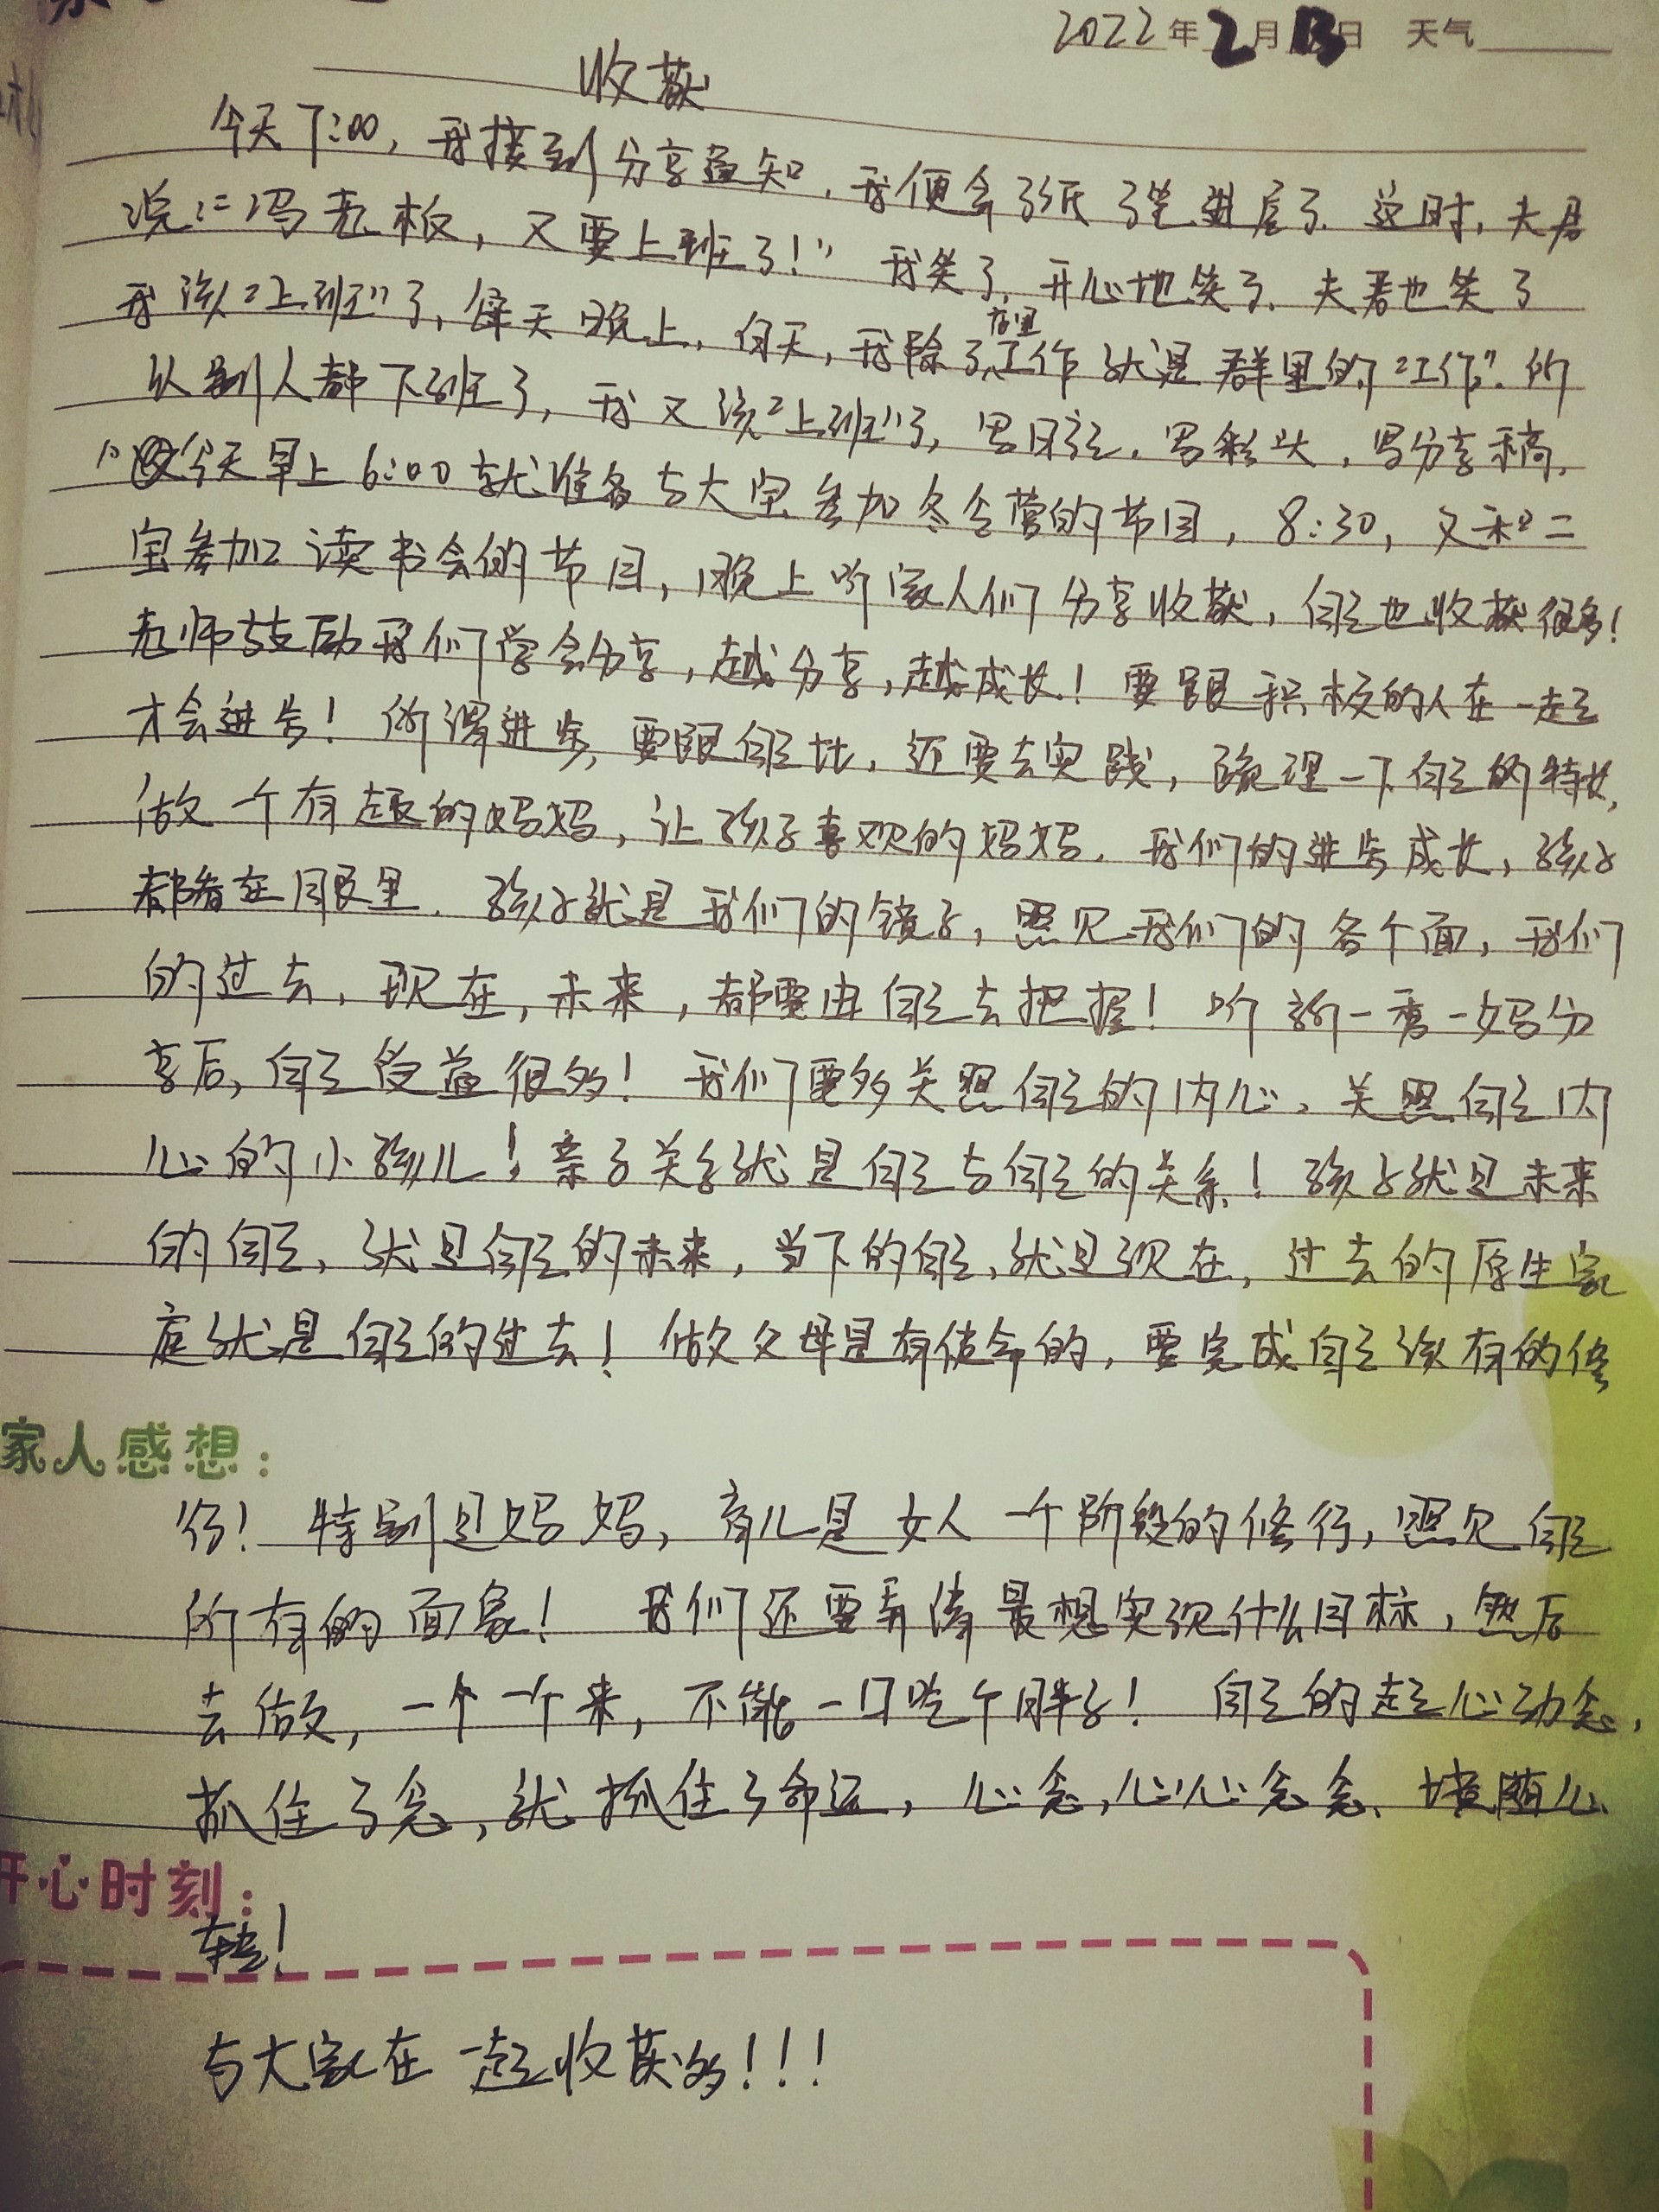 2022年2月13日 天气
收获
今天7:00，我接到分享通知，我便拿了纸了笔进屋了。这时，夫君
说："冯老板，又要上班了！"我笑了，开心地笑了。夫君也笑了
我该"上班"了，每天晚上，白天，我除了店里工作就是群里的"工作"。所
以别人都下班了，我又该"上班"了，写日记。写彩头，写分享稿。
今天早上6:00就准备与大宝参加冬令营的节目，8:30，又和二
宝参加读书会的节目，晚上听家人们分享收获，自己也收获很多！
老师鼓励我们学会分享，越分享，越成长！要跟积极的人在一起
才会进步！所谓进步，要跟自己比，还要去实践，疏理一下自己的特长，
做一个有趣的妈妈，让孩子喜欢的妈妈。我们的进步成长，孩子
都看在眼里。孩子就是我们的镜子，照见我们的各个面，我们
的过去，现在，未来，都要由自己去把握！听新一秀一妈分
享后，自己受益很多！我们要多关照自己的内心，关照自己内
心的小孩儿！亲子关系就是自己与自己的关系！孩子就是未来
的自己，就是自己的未来，当下的自己，就是现在，过去的原生家
庭就是自己的过去！做父母是有使命的，要完成自己该有的修
家人感想：
行！特别是妈妈，育儿是女人一个阶段的修行，照见自己
所有的面象！我们还要弄清最想实现什么目标，然后
去做，一个一个来，不能一口吃个胖子！自己的起心动念，
抓住了念，就抓住了命运，心念，心心念念、境随心
开心时刻：
转！
与大家在一起收获多！！！